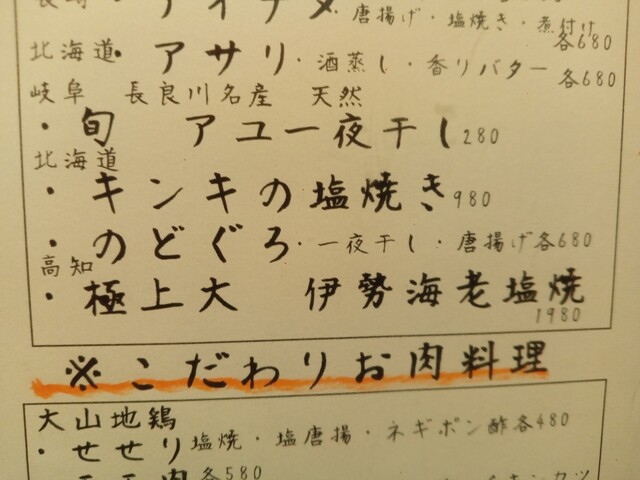 アイナメ・唐揚げ・塩焼き・煮付け
各680
北海道・アサリ・酒蒸し・香りバター各680
岐阜 長良川名産 天然
・旬 アユ一夜干し280
北海道
・キンキの塩焼き980
・のどぐろ・一夜干し・唐揚げ各680
高知
・極上大 伊勢海老塩焼
1980
※こだわりお肉料理
大山地鶏
・せせり塩焼・塩唐揚・ネギポン酢各480
肉各580